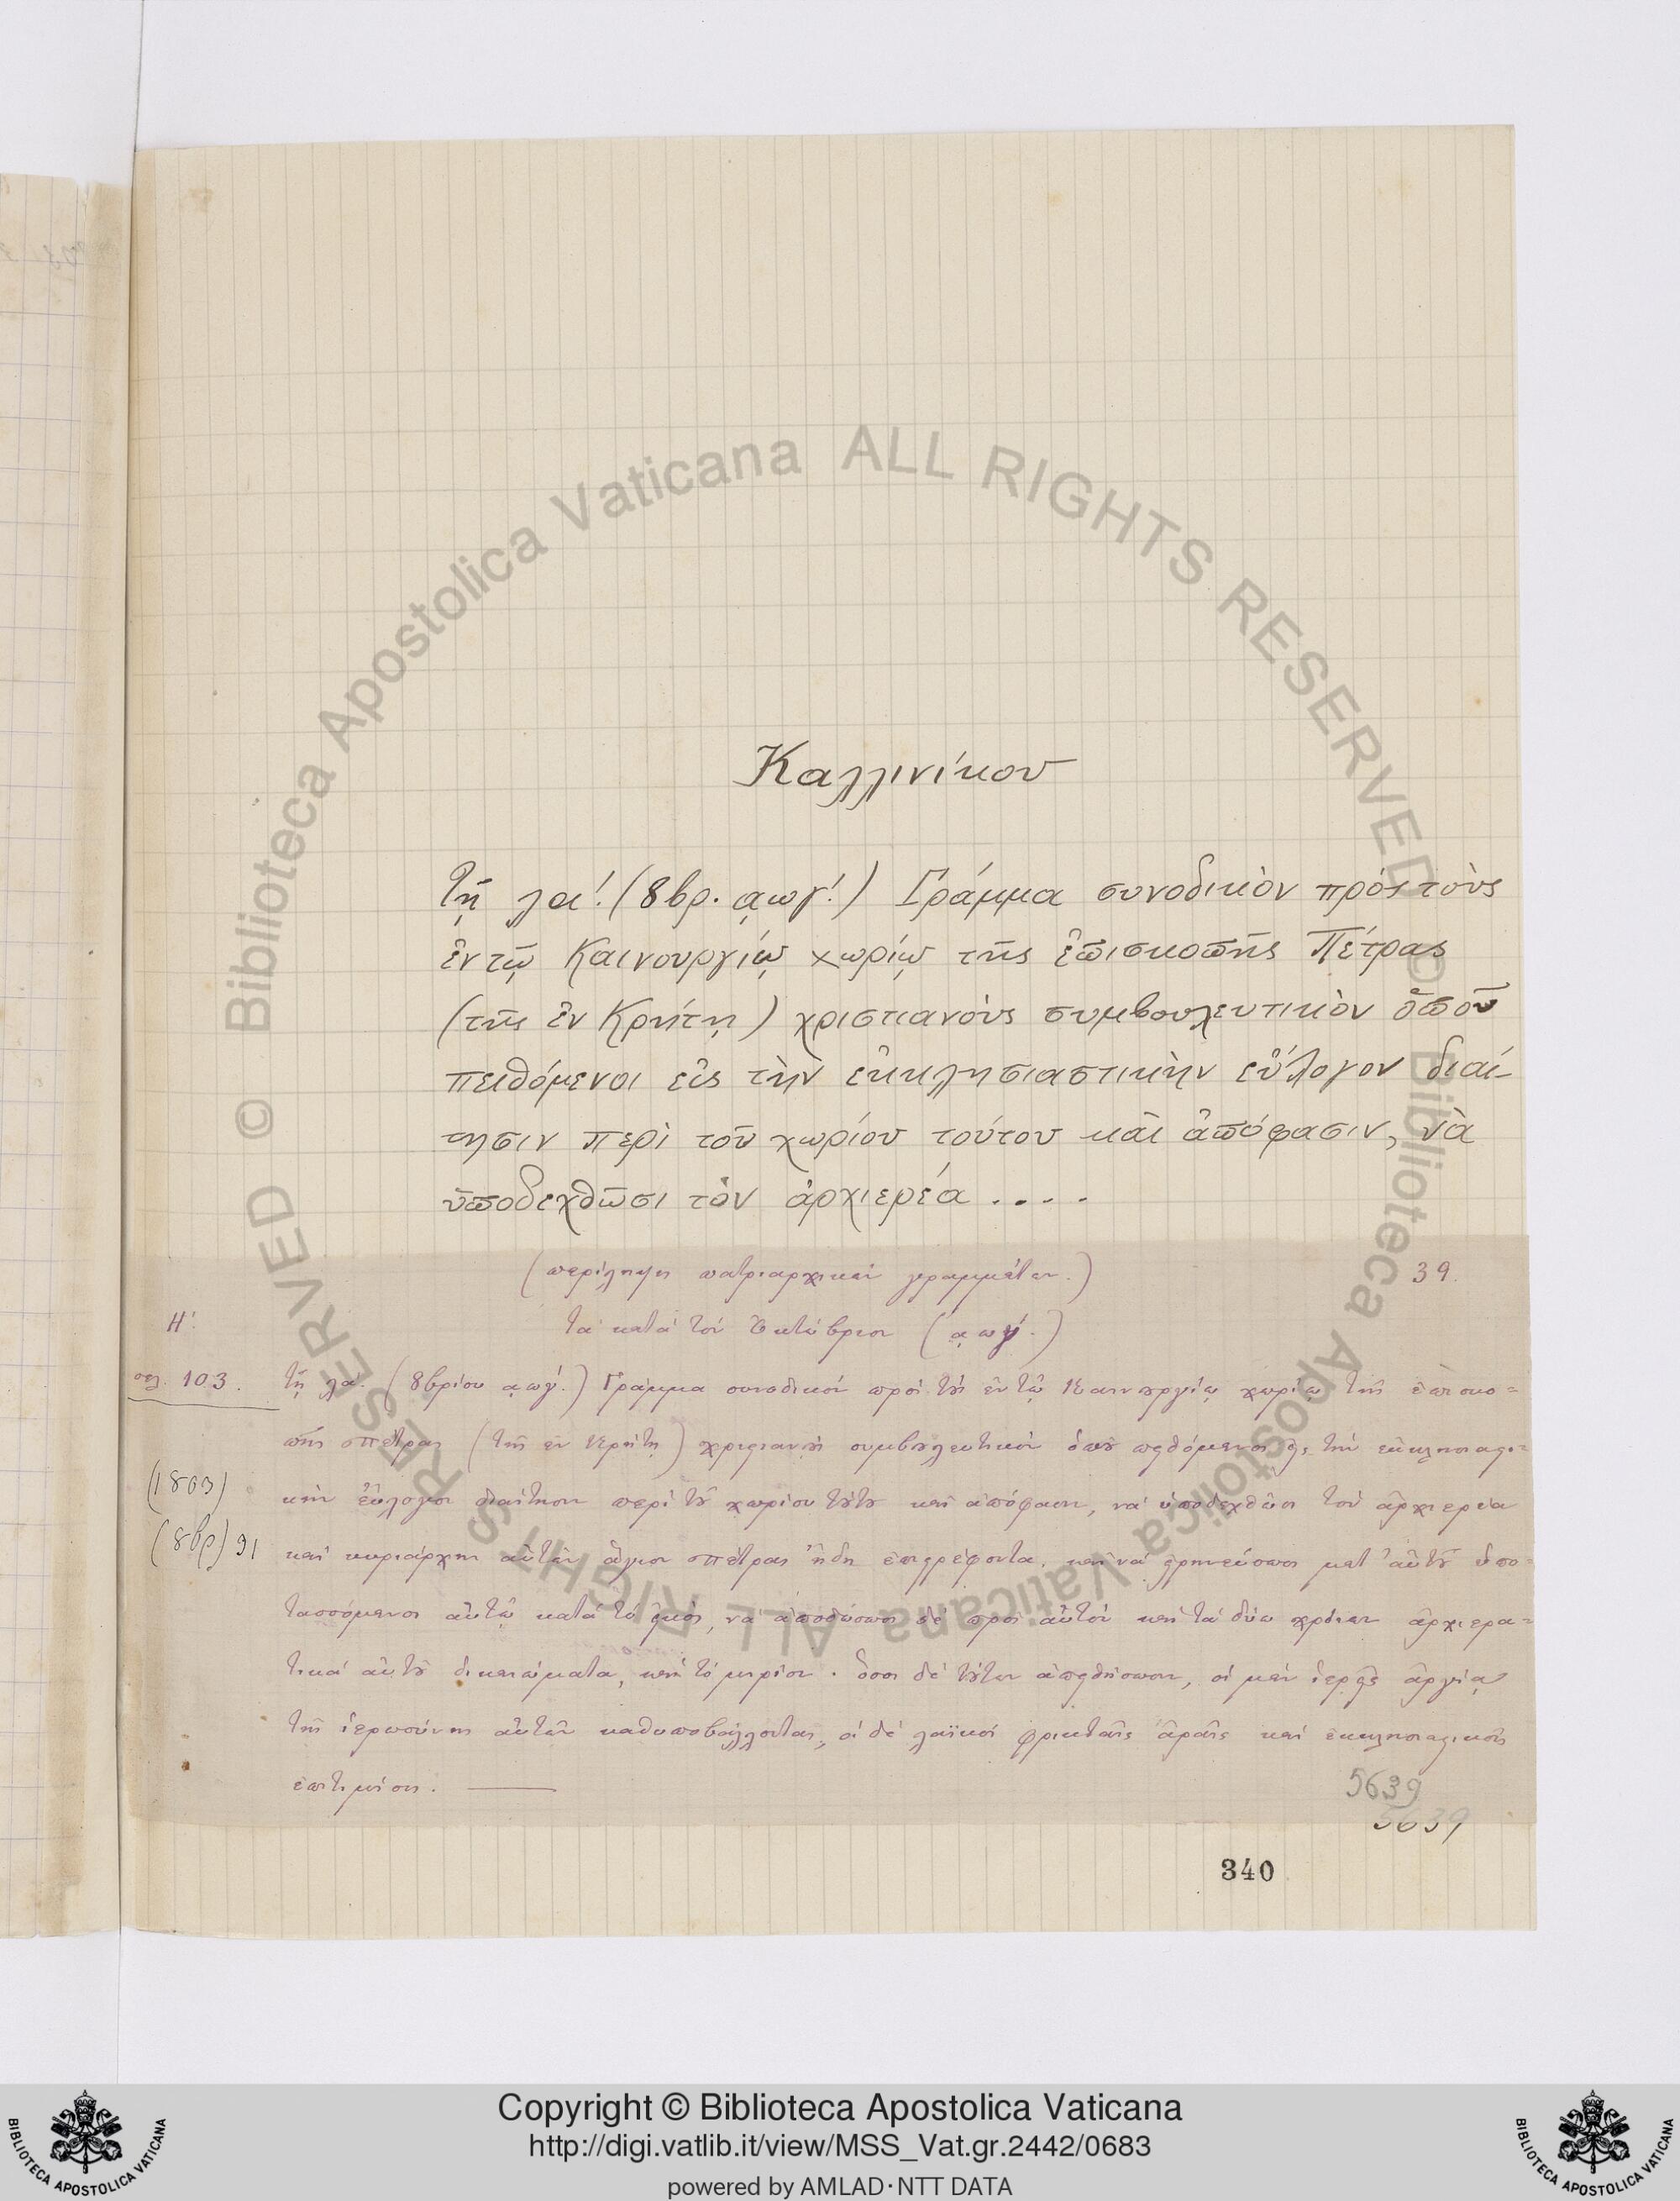 Καλλινίκου
Τῇ λα΄. (8βρ. ͵αωγ΄.) Γράμμα συνοδικὸν πρὸς τοὺς
ἐν τῷ Καινουργίῳ χωρίῳ τῆς ἐπισκοπῆς Πέτρας
(τῆς ἐν Κρήτῃ) χριστιανοὺς συμβουλευτικὸν ὅπου
πειθόμενοι εἰς τὴν ἐκκλησιαστικὴν εὔλογον διαί-
τησιν περὶ τοῦ χωρίου τούτου καὶ ἀπόφασιν, νὰ
ὑποδεχθῶσι τὸν ἀρχιερέα ....
(περίληψις πατριαρχικῶν γραμμάτων.) 39.
Η΄. Τὰ κατὰ τὸν Ὀκτώβριον (͵αωγ΄.)
σελ. 103. τῇ λα΄. (8βρίου ͵αωγ΄.) Γράμμα συνοδικὸν πρὸς τοὺς ἐν τῷ Καινουργίῳ χωρίῳ τῆς ἐπισκο=
πῆς Πέτρας (τῆς ἐν Κρήτῃ) χριστιανοὺς συμβουλευτικὸν ὅπου πειθόμενοι εἰς τὴν ἐκκλησιαστι=
(1803) κὴν εὔλογον διαίτησιν περὶ τοῦ χωρίου τούτου καὶ ἀπόφασιν, νὰ ὑποδεχθῶσι τὸν ἀρχιερέα
(8βρ) 31 καὶ κυριάρχην αὐτῶν ἅγιον Πέτρας ἤδη ἐπιστρέφοντα, καὶ νὰ εἰρηνεύσωσι μετ' αὐτοῦ ὑπο=
τασσόμενοι αὐτῷ κατὰ τὸ εἰκός, νὰ ἀποδώσωσι δὲ πρὸς αὐτὸν καὶ τὰ δύω χρόνων ἀρχιερα=
τικὰ αὐτοῦ δικαιώματα, καὶ τὸ μιρίον. ὅσοι δὲ τούτων ἀπειθήσωσιν, οἱ μὲν ἱερεῖς ἀργίᾳ
τῆς ἱερωσύνης αὐτῶν καθυποβάλλονται, οἱ δὲ λαϊκοὶ φρικταῖς ἀραῖς καὶ ἐκκλησιαστικοῖς
ἐπιτιμίοις.
5639
5639
340
© Biblioteca Apostolica Vaticana ALL RIGHTS RESERVED
© Biblioteca Apostolica Vaticana ALL RIGHTS RESERVED
BIBLIOTECA APOSTOLICA VATICANA
Copyright © Biblioteca Apostolica Vaticana
http://digi.vatlib.it/view/MSS_Vat.gr.2442/0683
powered by AMLAD·NTT DATA
BIBLIOTECA APOSTOLICA VATICANA